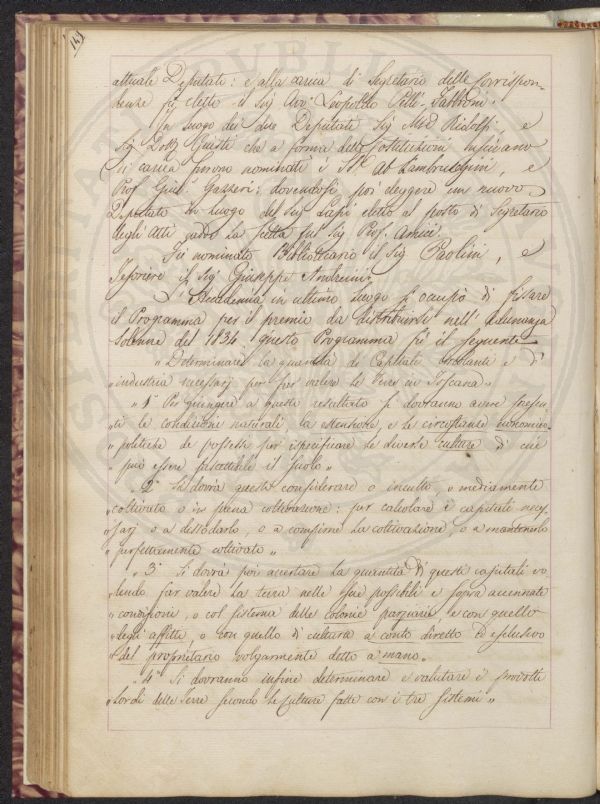 141
attuale Deputato: e alla carica di Segretario delle Corrispon-
denze fu eletto il Sig. Avv. Leopoldo Pelli-Fabbroni.
In luogo dei due Deputati Sig. Mse Ridolfi, e
Sig. Dott. Giusti che a forma delle Costituzioni uscivano
di carica furono nominati i SSri Ab. Lambruschini, e
Prof. Giul. Gazzeri: dovendosi poi eleggere un nuovo
Deputato in luogo del Sig. Lapi eletto al posto di Segretario
degli Atti cadde la scelta sul Sig. Prof. Amici.
Fu nominato Bibliotecario il Sig. Paolini, e
Tesoriere il Sig. Giuseppe Andreini.
L'Accademia in ultimo luogo si occupò di fissare
il Programma per il premio da distribuirsi nell'Adunanza
Solenne del 1834. questo Programma fu il seguente
„ Determinare la quantità di Capitali circolante e d'
„ industria necessarj per far valere le Terre in Toscana „
„ 1° Per giungere a questo resultato si dovranno avere presen-
„ ti le condizioni naturali, la estensione, e le circostanze economico-
„ politiche de' possessi per specificare le diverse culture di cui
„ può essere suscettibile il suolo „
„ 2° Si dovrà questo considerare o inculto, o mediamente
„ coltivato o in piena coltivazione: per calcolare i capitali neces-
„ sarj o a dissodarlo, o a compirne la coltivazione, o a mantenerlo
„ perfettamente coltivato „
„ 3° Si dovrà poi accertare la quantità di questi capitali vo
„ lendo far valere la terra nelle sue possibili e sopra accennate
„ condizioni, o col sistema delle colonie parziarie e con quello
„ degli affitti, o con quello di cultura a conto diretto ed esclusivo
„ del proprietario volgarmente detto a mano.
„ 4° Si dovranno infine determinare e valutare i prodotti
„ lordi delle Terre secondo le Culture fatte con i tre sistemi „